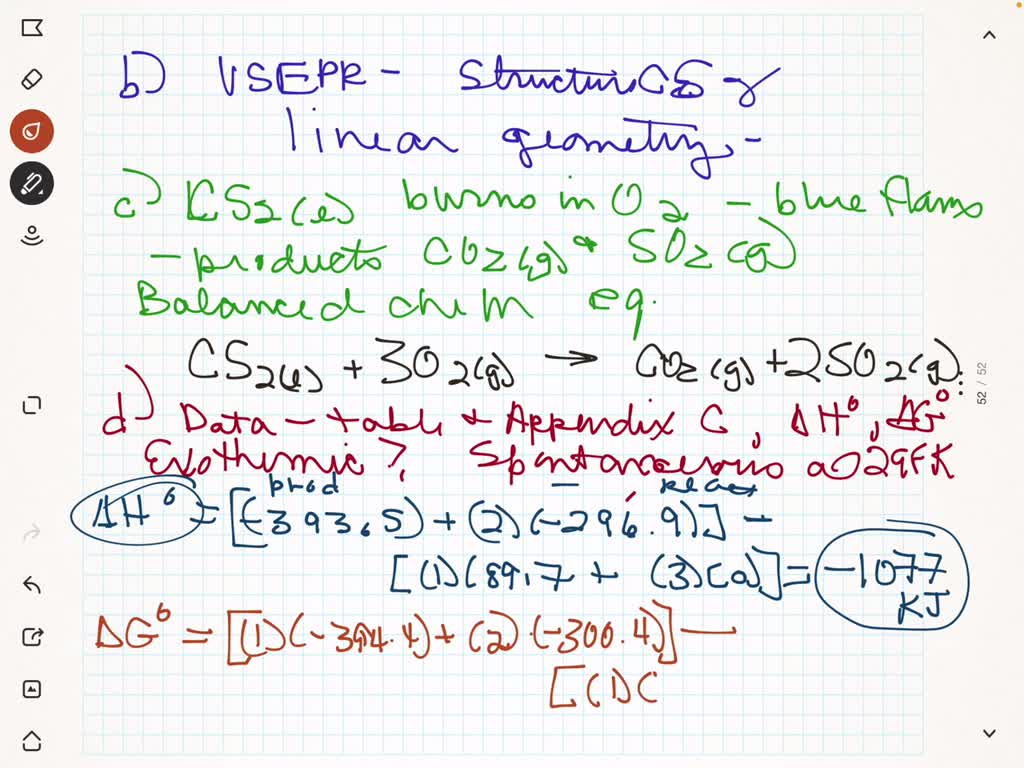 b) VSEPR - Structure CS2
linear geometry -
c) CS2(l) burns in O2 - blue flame
- products CO2(g) + SO2(g)
Balanced chem eq.
CS2(l) + 3O2(g) → CO2(g) + 2SO2(g)
52 / 52
d) Data - table + Appendix C, ΔH°, ΔG°
Exothermic? Spontaneous a 298K
prod - react
ΔH° = [(-393.5) + (2)(-296.9)] -
[(1)(89.7 + (3)(0)] = -1077
KJ
ΔG° = [(1)(-394.4) + (2)·(-300.4)] -
[(1)(